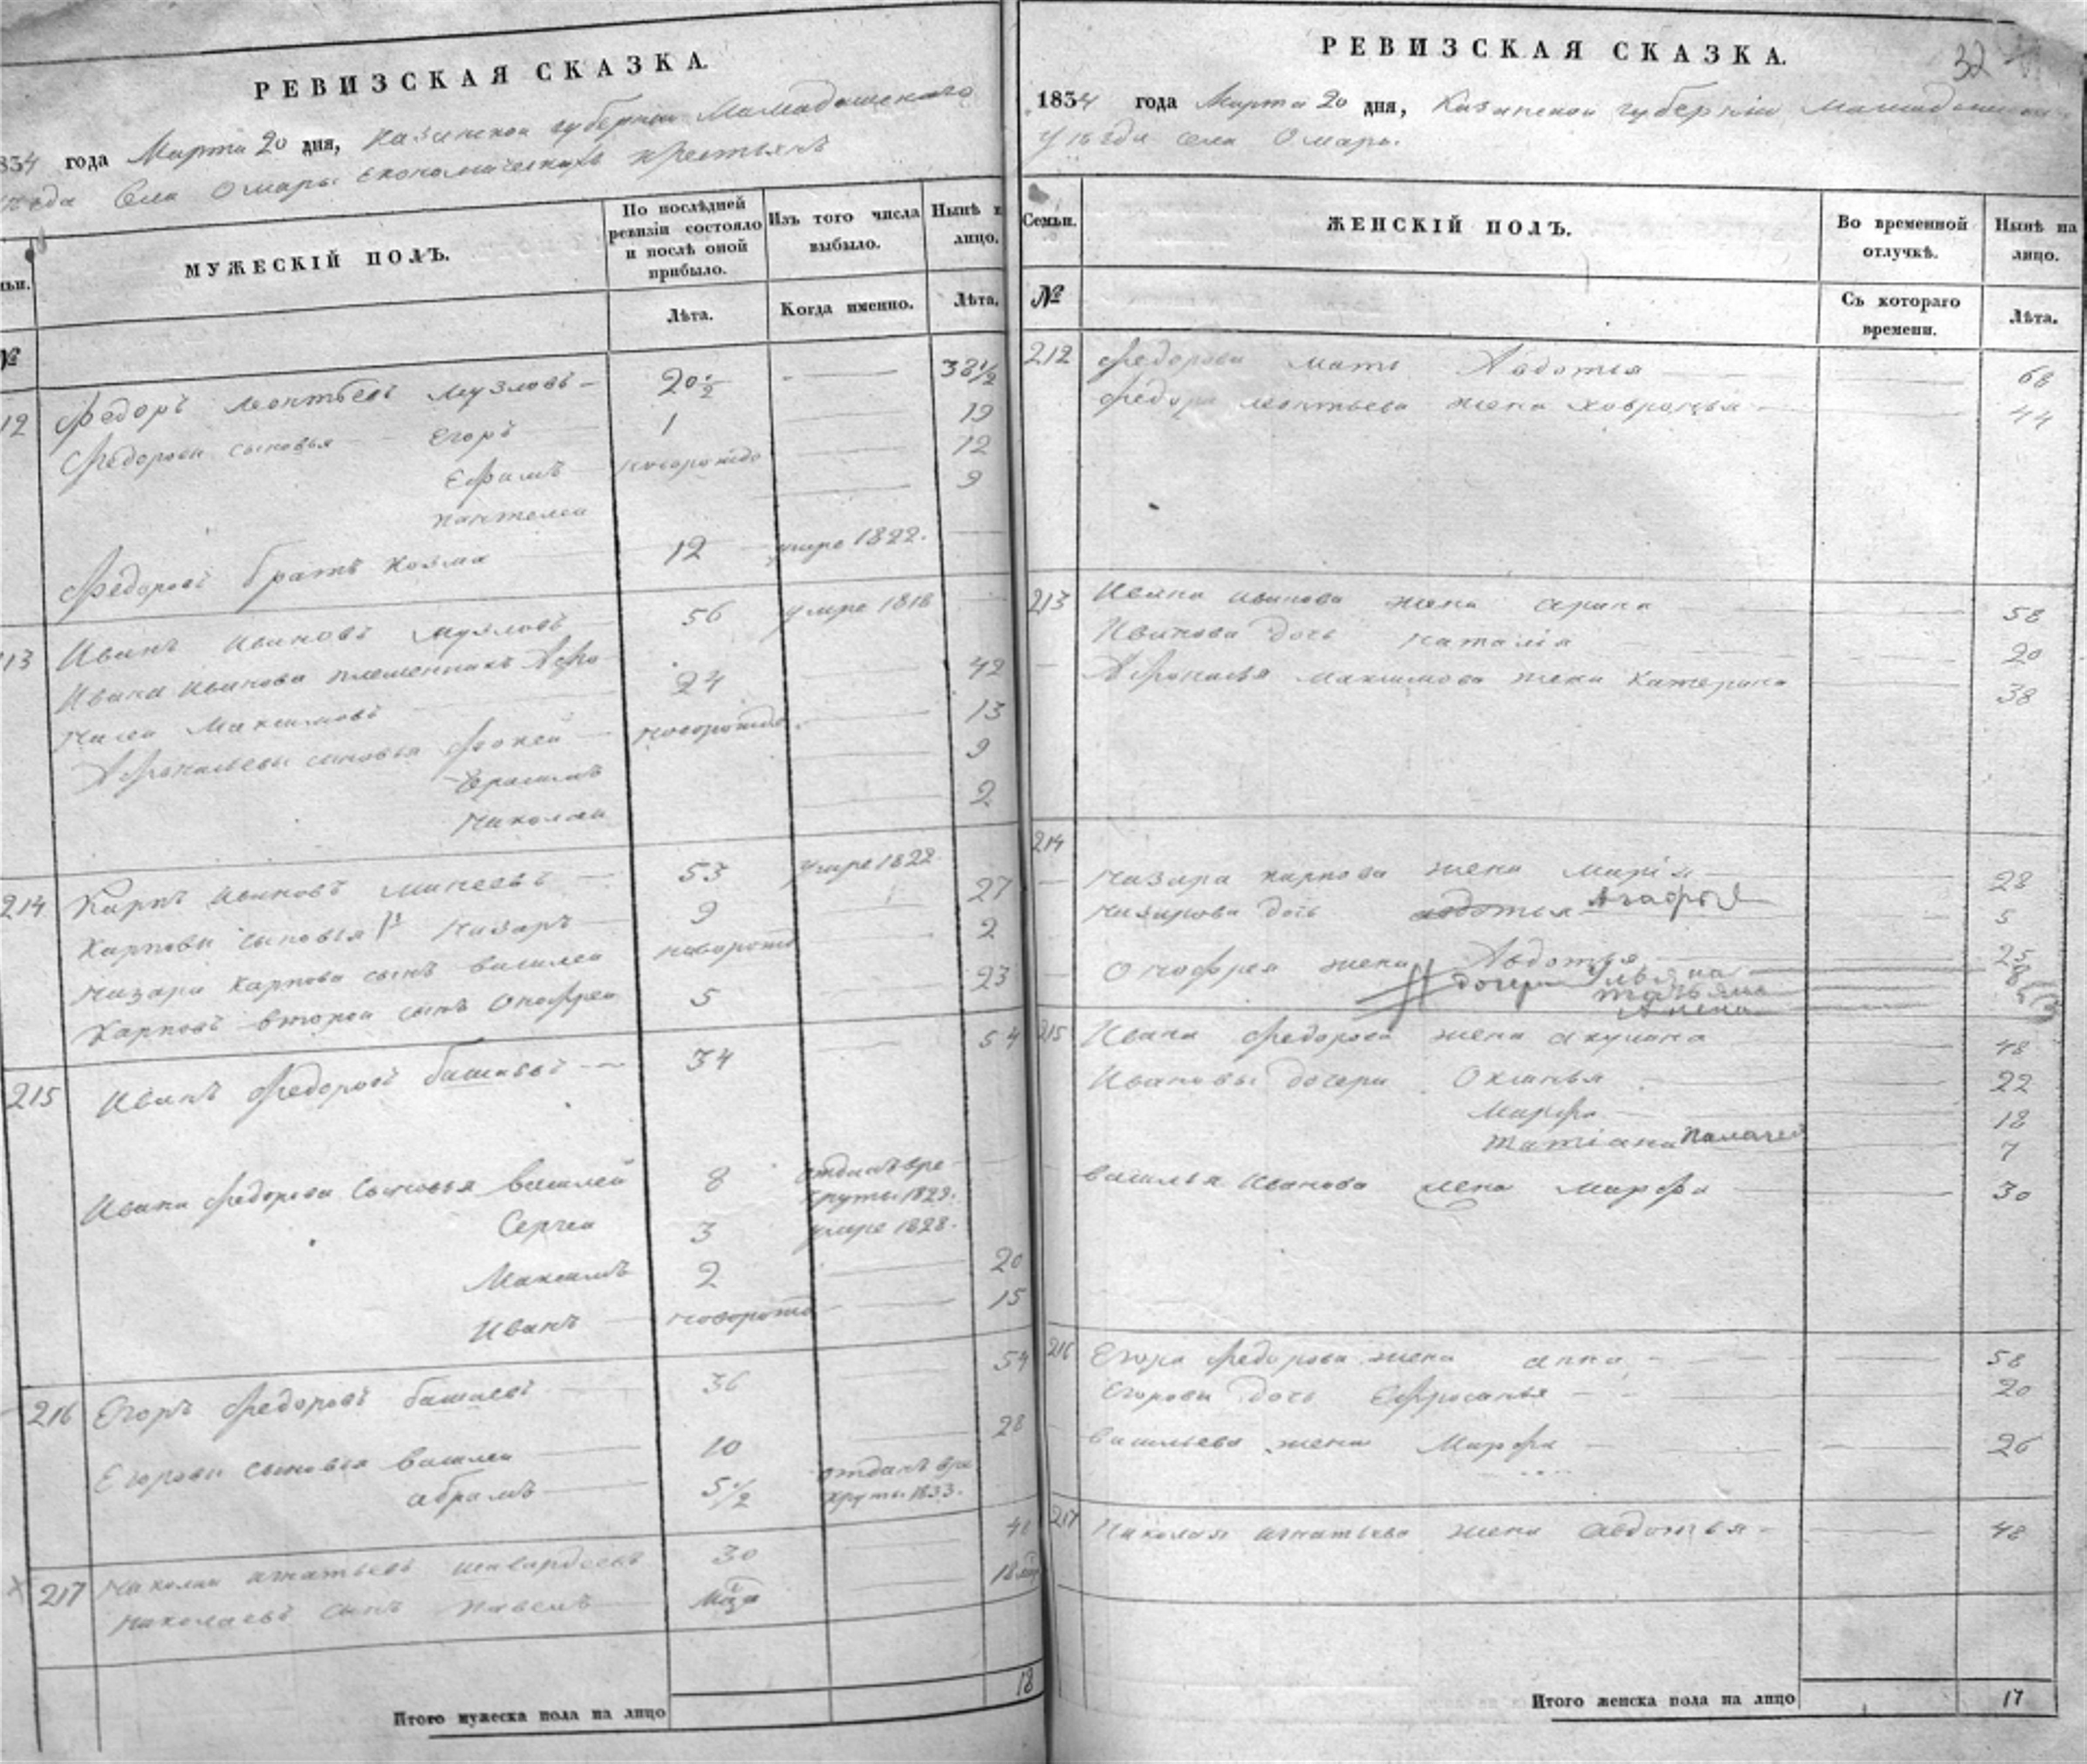 РЕВИЗСКАЯ СКАЗКА.
1834 года Марта 20 дня, Казанской губернiи Мамадышскаго
уезда Села Омары Економическихъ крестьянъ
МУЖЕСКIЙ ПОЛЪ.
По послѣдней ревизiи состояло и послѣ оной прибыло.
Изъ того числа выбыло.
Нынѣ на лицо.
№
Лѣта.
Когда именно.
Лѣта.
212 Федоръ Леонтьевъ Музловъ 20 1/2 38 1/2
Федоровы сыновья Егоръ 1 19
Ефимъ новорожде 12
Пантелеи 9
Федоровъ братъ Козма 12 умре 1822.
213 Иванъ Ивановъ Музловъ 56 умре 1818
Ивана Иванова племенникъ Афо-
насеи Максимовъ 24 42
Афонасьевы сыновья Фокей новорожде 13
9
Николаи 2
214 Карпъ Ивановъ Минеевъ 53 умре 1822.
Карповы сыновья 1й Назаръ 9 27
Назара Карпова сынъ Василеи новорожд 2
Карповъ второй сынъ Онофреи 5 23
215 Иванъ Федоровъ 34 54
Ивана Федорова Сыновья Василей 8 отданъ вре-
круты 1829.
Сергеи 3 умре 1828.
Максимъ 2 20
Иванъ новорожд 15
216 Егоръ Федоровъ 36 54
Егоровы сыновья Василеи 10 28
Абрамъ 5 1/2 отданъ вре
круты 1833.
217 Николаи Игнатьевъ 30
Николаевъ сынъ Павелъ 18
Итого мужеска пола на лицо 18
РЕВИЗСКАЯ СКАЗКА.
32
1834 года Марта 20 дня, Казанской губернiи
уѣзда села Омары.
Семьи.
ЖЕНСКIЙ ПОЛЪ.
Во временной отлучкѣ.
Нынѣ на лицо.
№
Съ котораго времени.
Лѣта.
212 Федорова мать Авдотья 68
Федора Леонтьева жена Хавронья 44
213 Ивана Иванова жена Арина 58
Иванова дочь Наталiя 20
Афонасья Максимова жена Катерина 38
214
Назара Карпова жена Марiя 28
Назарова дочь Авдотья Агафья 5
Онофрея жена Авдотья 25
дочери Ульяна 8
Татьяна
Анна
215 Ивана Федорова жена Акулина 48
Ивановы дочери Оксинья 22
Марфа 18
Татiана 7
Василья Иванова жена Марфа 30
216 Егора Федорова жена Анна 58
Егорова дочь Ефросинья 20
Васильева жена Марфа 26
217 Николая Игнатьева жена Авдотья 48
Итого женска пола на лицо 17